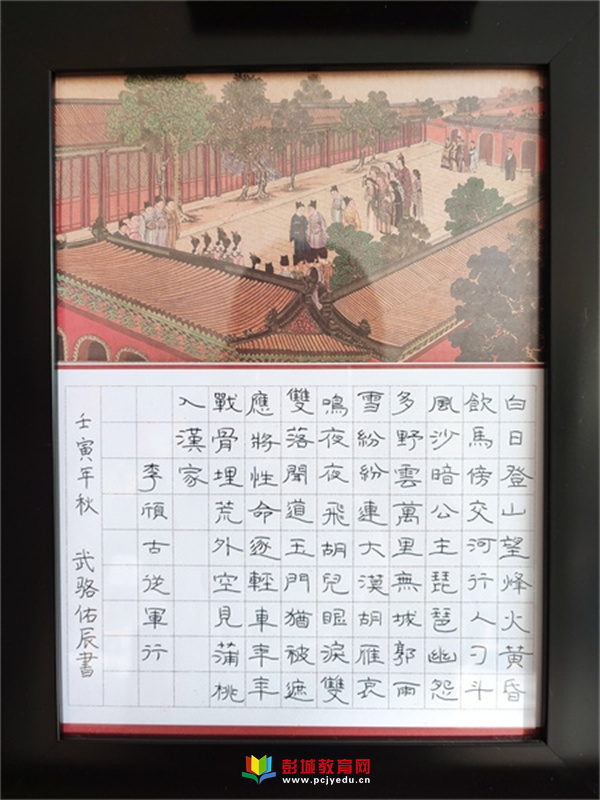 白日登山望烽火黄昏
飲馬傍交河行人刁斗
風沙暗公主琵琶幽怨
多野雲萬里無城郭雨
雪紛紛連大漠胡雁哀
鳴夜夜飛胡兒眼淚雙
雙落聞道玉門猶被遮
應將性命逐輕車年年
戰骨埋荒外空見蒲桃
入漢家
李頎古從軍行
壬寅年秋 武骆佑辰書
彭城教育网
www.pcjyedu.cn